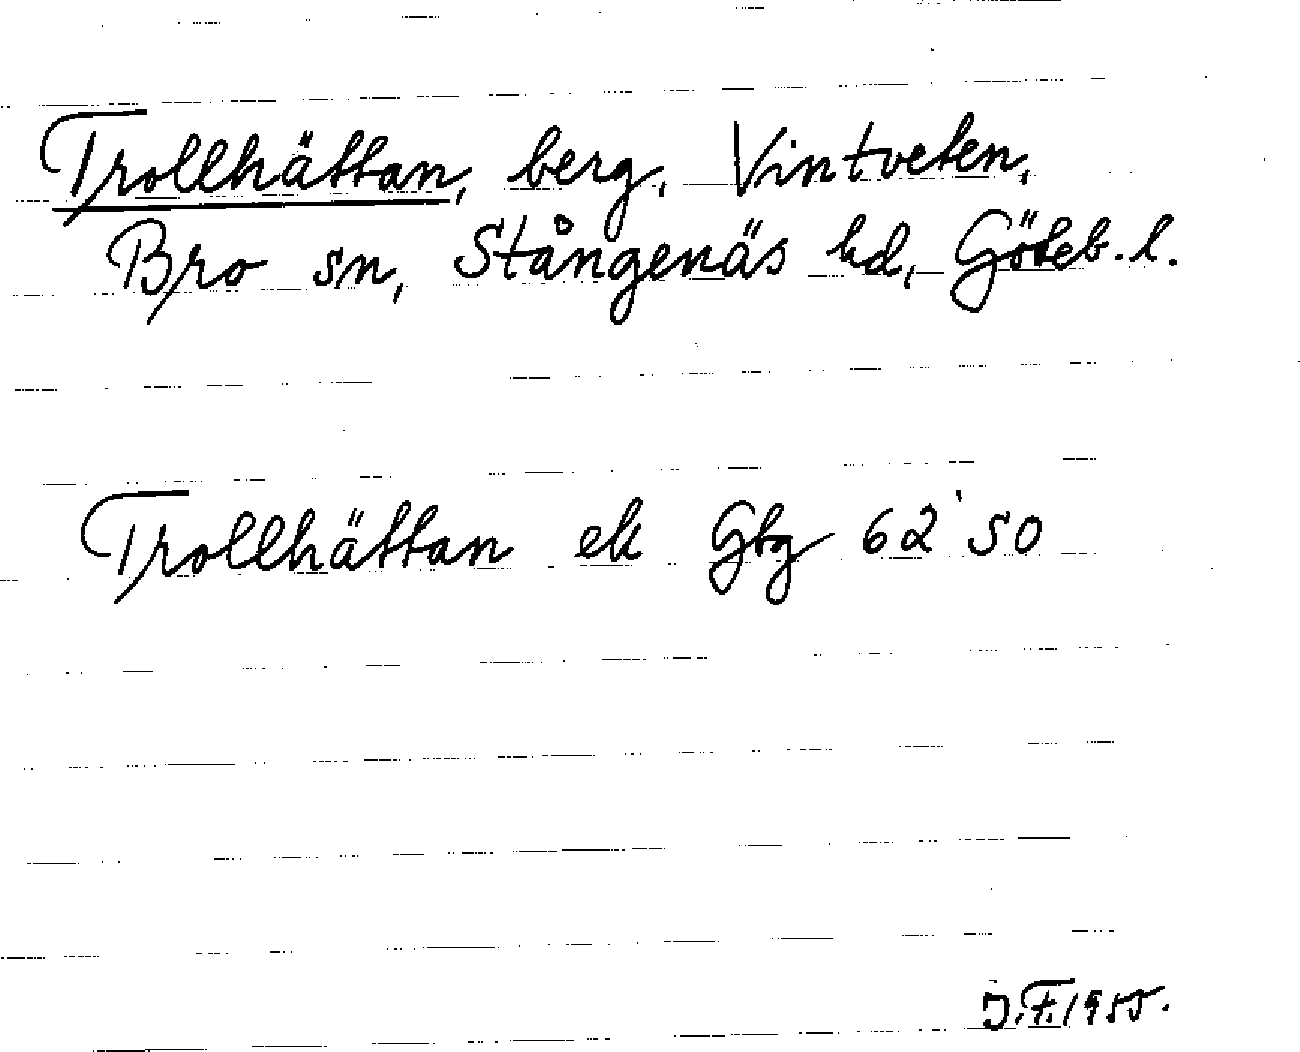 Trollhättan, berg, Vintveten,
Bro sn, Stångenäs hd, Göteb. l.
Trollhättan ek Gbg 62' 50
J.F. 1955.